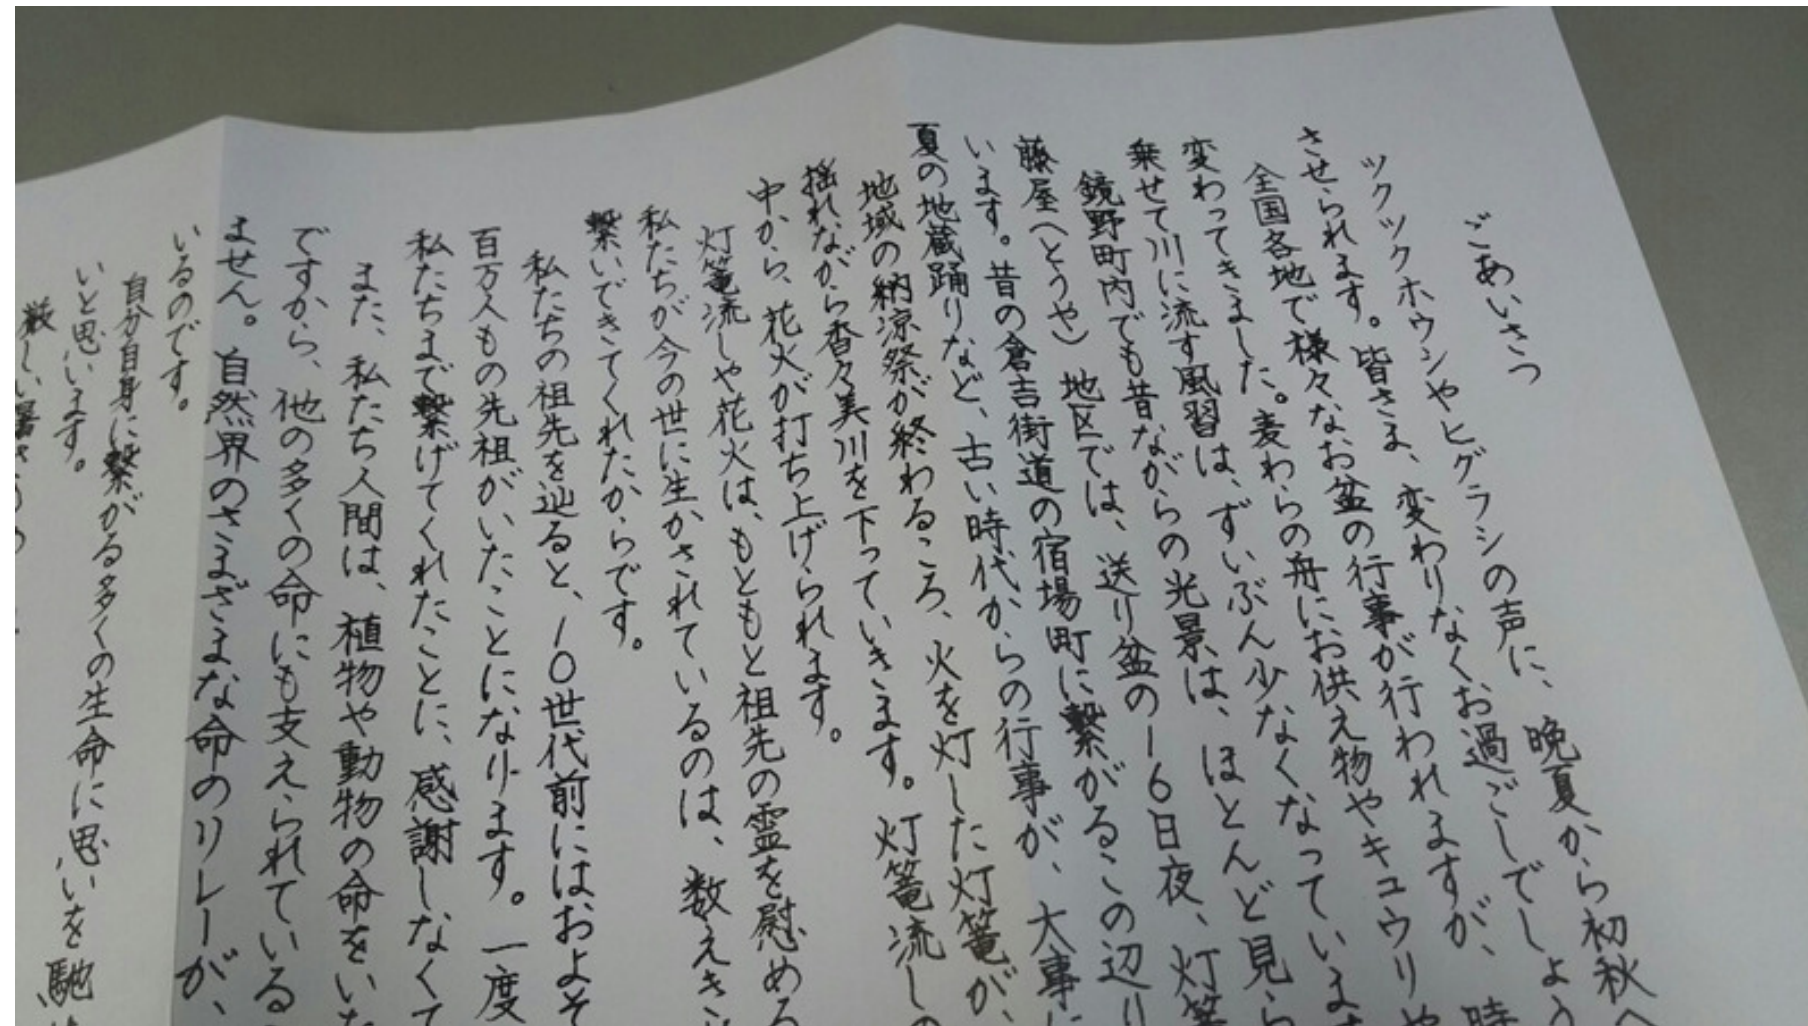 ごあいさつ
ツクツクホウシやヒグラシの声に、晩夏から初秋へ
させられます。皆さま、変わりなくお過ごしでしょう
全国各地で様々なお盆の行事が行われますが、時
変わってきました。麦わらの舟にお供え物やキュウリや
乗せて川に流す風習は、ずいぶん少なくなっていま
鏡野町内でも昔ながらの光景は、ほとんど見ら
藤屋(とうや)地区では、送り盆の16日夜、灯篭
います。昔の倉吉街道の宿場町に繋がるこの辺り
夏の地蔵踊りなど、古い時代からの行事が、大事に
地域の納涼祭が終わるころ、火を灯した灯篭が、
揺れながら香々美川を下っていきます。灯篭流しの
中から、花火が打ち上げられます。
灯篭流しや花火は、もともと祖先の霊を慰める
私たちが今の世に生かされているのは、数えき
繋いできてくれたからです。
私たちの祖先を辿ると、10世代前にはおよそ
百万人もの先祖がいたことになります。一度
私たちまで繋げてくれたことに、感謝しなくて
また、私たち人間は、植物や動物の命をいた
ですから、他の多くの命にも支えられている
ません。自然界のさまざまな命のリレーが、
いるのです。
自分自身に繋がる多くの生命に思いを馳
いと思います。
厳しい暑さ